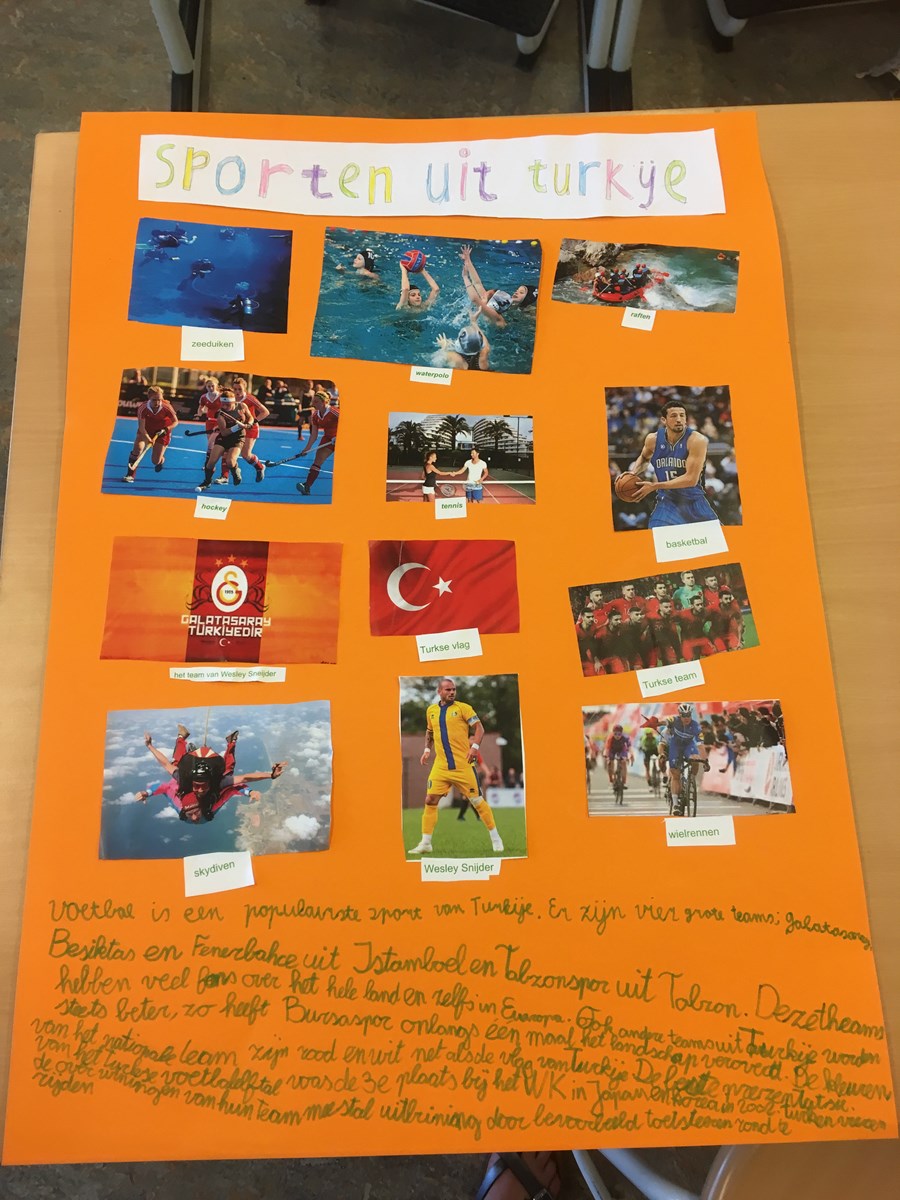 sporten uit turkije
zeeduiken
waterpolo
raften
hockey
tennis
ORLANDO
15
basketbal
1905
GALATASARAY
TÜRKİYEDİR
het team van Wesley Sneijder
Turkse vlag
Turkse team
skydiven
Wesley Snijder
wielrennen
Voetbal is een populairste sport van Turkije. Er zijn vier grote teams; galatasaray,
Besiktas en Fenerbahce uit Istamboel en Tabzonspor uit Tabzon. Deze theams
hebben veel fans over het hele land en zelfs in Europa. Ook andre teams uit Turkije worden
steets beter, zo heeft Bursaspor onlangs één maal het landschap veroverd. De kleuren
van het nationale team zijn rood en wit net als de vlag van Turkije De beste prezentatsie
van het turkse voetbalelftal was de 3e plaats bij het WK in Japan en Korea in 2002. turken vieren
de overwiningen van hun team meestal uitbrining door bevoorbeeld toetsteren rond te
rijden